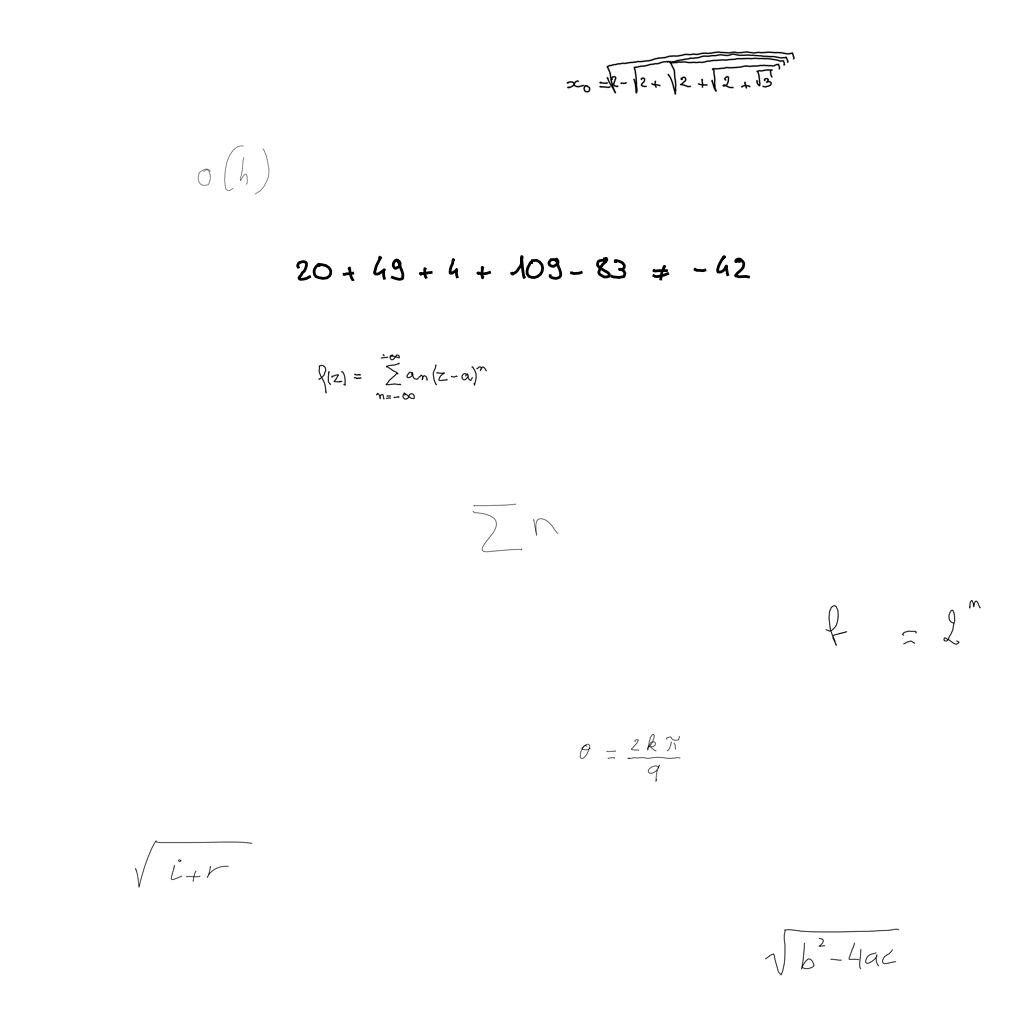 x₀ = √(2-√(2+√(2+√(2+√3))))
o(h)
20 + 49 + 4 + 109 - 83 ≠ -42
f(z) = ∑_{n=-∞}^{+∞} an(z-a)ⁿ
∑ n
f = 2ⁿ
θ = 2kπ/9
√(i+r)
√(b²-4ac)